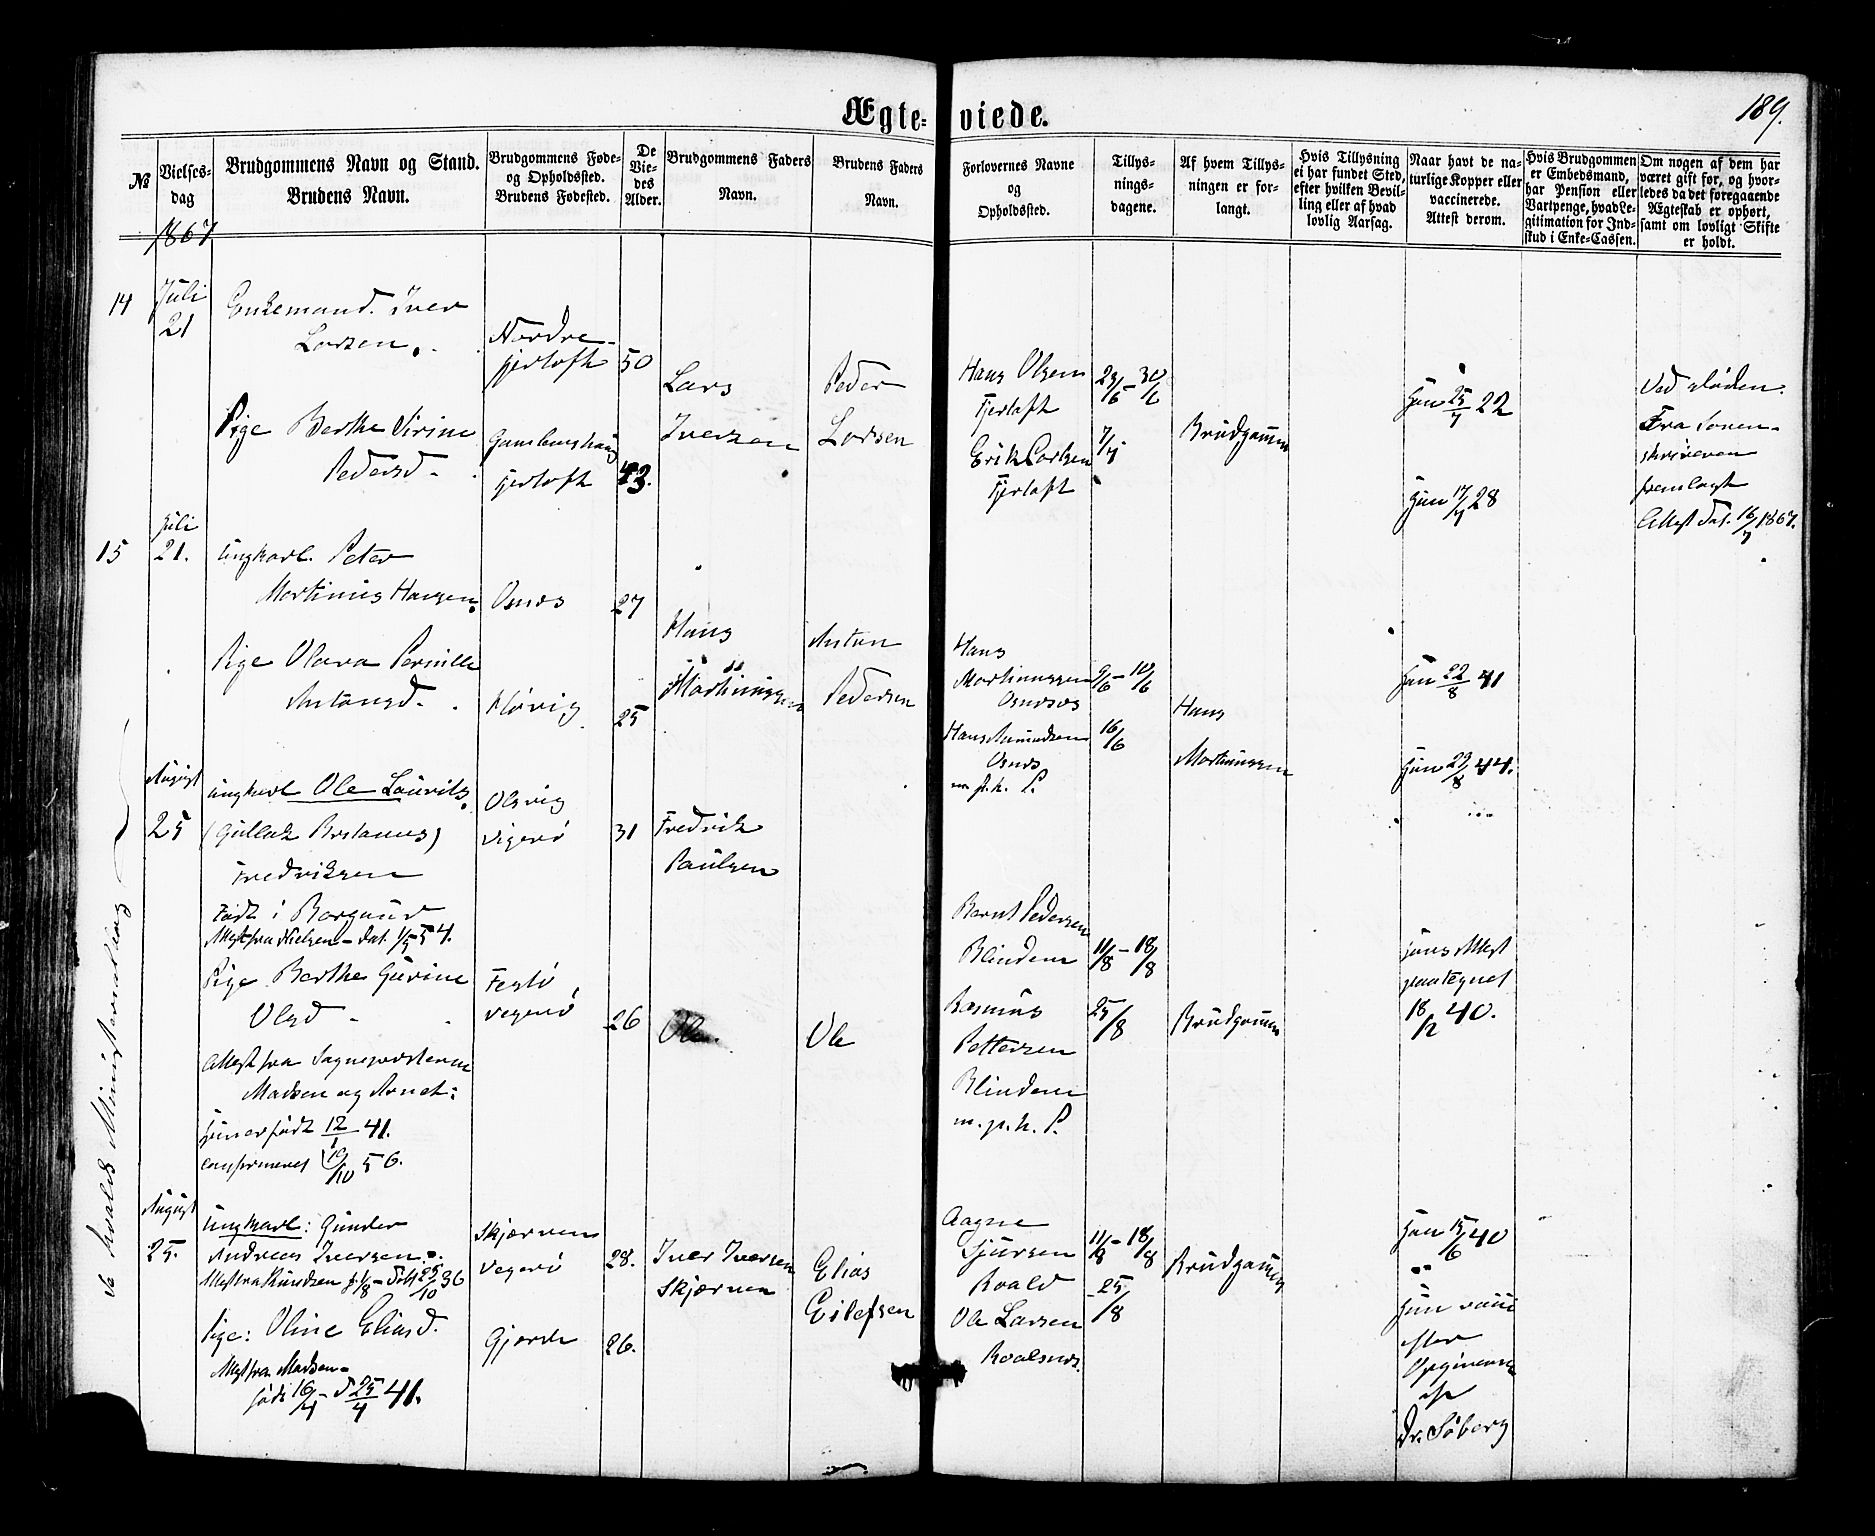 Ægte-viede.
189.
№
Vielses-
dag
1867
Brudgommens Navn og Stand.
Brudens Navn.
Brudgommens Føde-
og Opholdssted.
Brudens Fødested.
De
Vie-
des
Alder.
Brudgommens Faders
Navn.
Brudens Faders
Navn.
Forlovernes Navne
og
Opholdssted.
Tillys-
nings-
dagene.
Af hvem Tillys-
ningen er for-
langt.
Hvis Tillysning
ei har fundet Sted,
efter hvilken Bevil-
ling eller af hvad
lovlig Aarsag.
Naar havt de na-
turlige Kopper eller
vaccinerede.
Attest derom.
Hvis Brudgommen
er Embedsmand,
har Pension eller
Vartpenge, hvad Le-
gitimation for Ind-
skud i Enke-Cassen.
Om nogen af dem har
været gift før, og hvor-
ledes da det foregaaende
Ægteskab er ophørt,
samt om lovligt Skifte
er holdt.
14
Juli
21
Enkemand. Iver
Larsen.
Nordre
Fjertoft
50
Lars
Iversen
Peder
Larsen
Pige Berthe Sirine
Pedersd.
Fjertoft
43.
Hans Olsen
Fjertoft
Erik Carlsen
Fjertoft
23/6 - 30/6
7/7
Brudgommen
25/7 22
17/7 28
Ved døden.
Fra Soren-
skriveren
fremlagt
Attest dat. 16/7 1867.
15
Juli
21.
Ungkarl. Peter
Martinus Hansen
Osnes
27
Hans
Martinussen
Anton
Pedersen
Pige Olava Pernille
Antonsd.
Høvig
25
Hans
Martinussen
Osnes
Hans Amundsen
Osnes
m. p. h. P.
9/6 - 10/6
16/6
Hans
Martinussen
22/8 41
22/8 44.
August
25
Ungkarl Ole Laurits
Fredriksen
Født i Borgund
Attest fra Nielsen dat. 1/5 54.
Olsvig
Vigerø
31
Fredrik
Paulsen
Pige Berthe Gurine
Olsd
Attest fra Sognepresterne
Madsen og Arnet:
Hun er født 12/1 41.
confirmeret 19/10 56.
Festø
Vegerø
26
Ole
Ole
Bernt Pedersen
Blindem
Rasmus
Pettersen
Blindem
m. p. h. P.
11/8 - 18/8
25/8
Brudgommen
Hans Attest
paategnet
18/2 40.
August
25.
Ungkarl: Gunder
Andreas Iversen
Attest fra Knudsen 8/8 - født 25/10 36
Skjærven
Vegerø
28.
Iver Iversen
Skjærven
Elias
Eilefsen
Pige: Oline Eliasd.
Attest fra Madsen
født 16/4 - d 25/4 41.
Gjerde
26.
Aagne
Sjursen
Roald
Ole Larsen
Roalsnes.
11/8 - 18/8
25/8
Brudgommen
15/6 40
Hun vacc
efter
Opgivende
af
Dr. Søberg